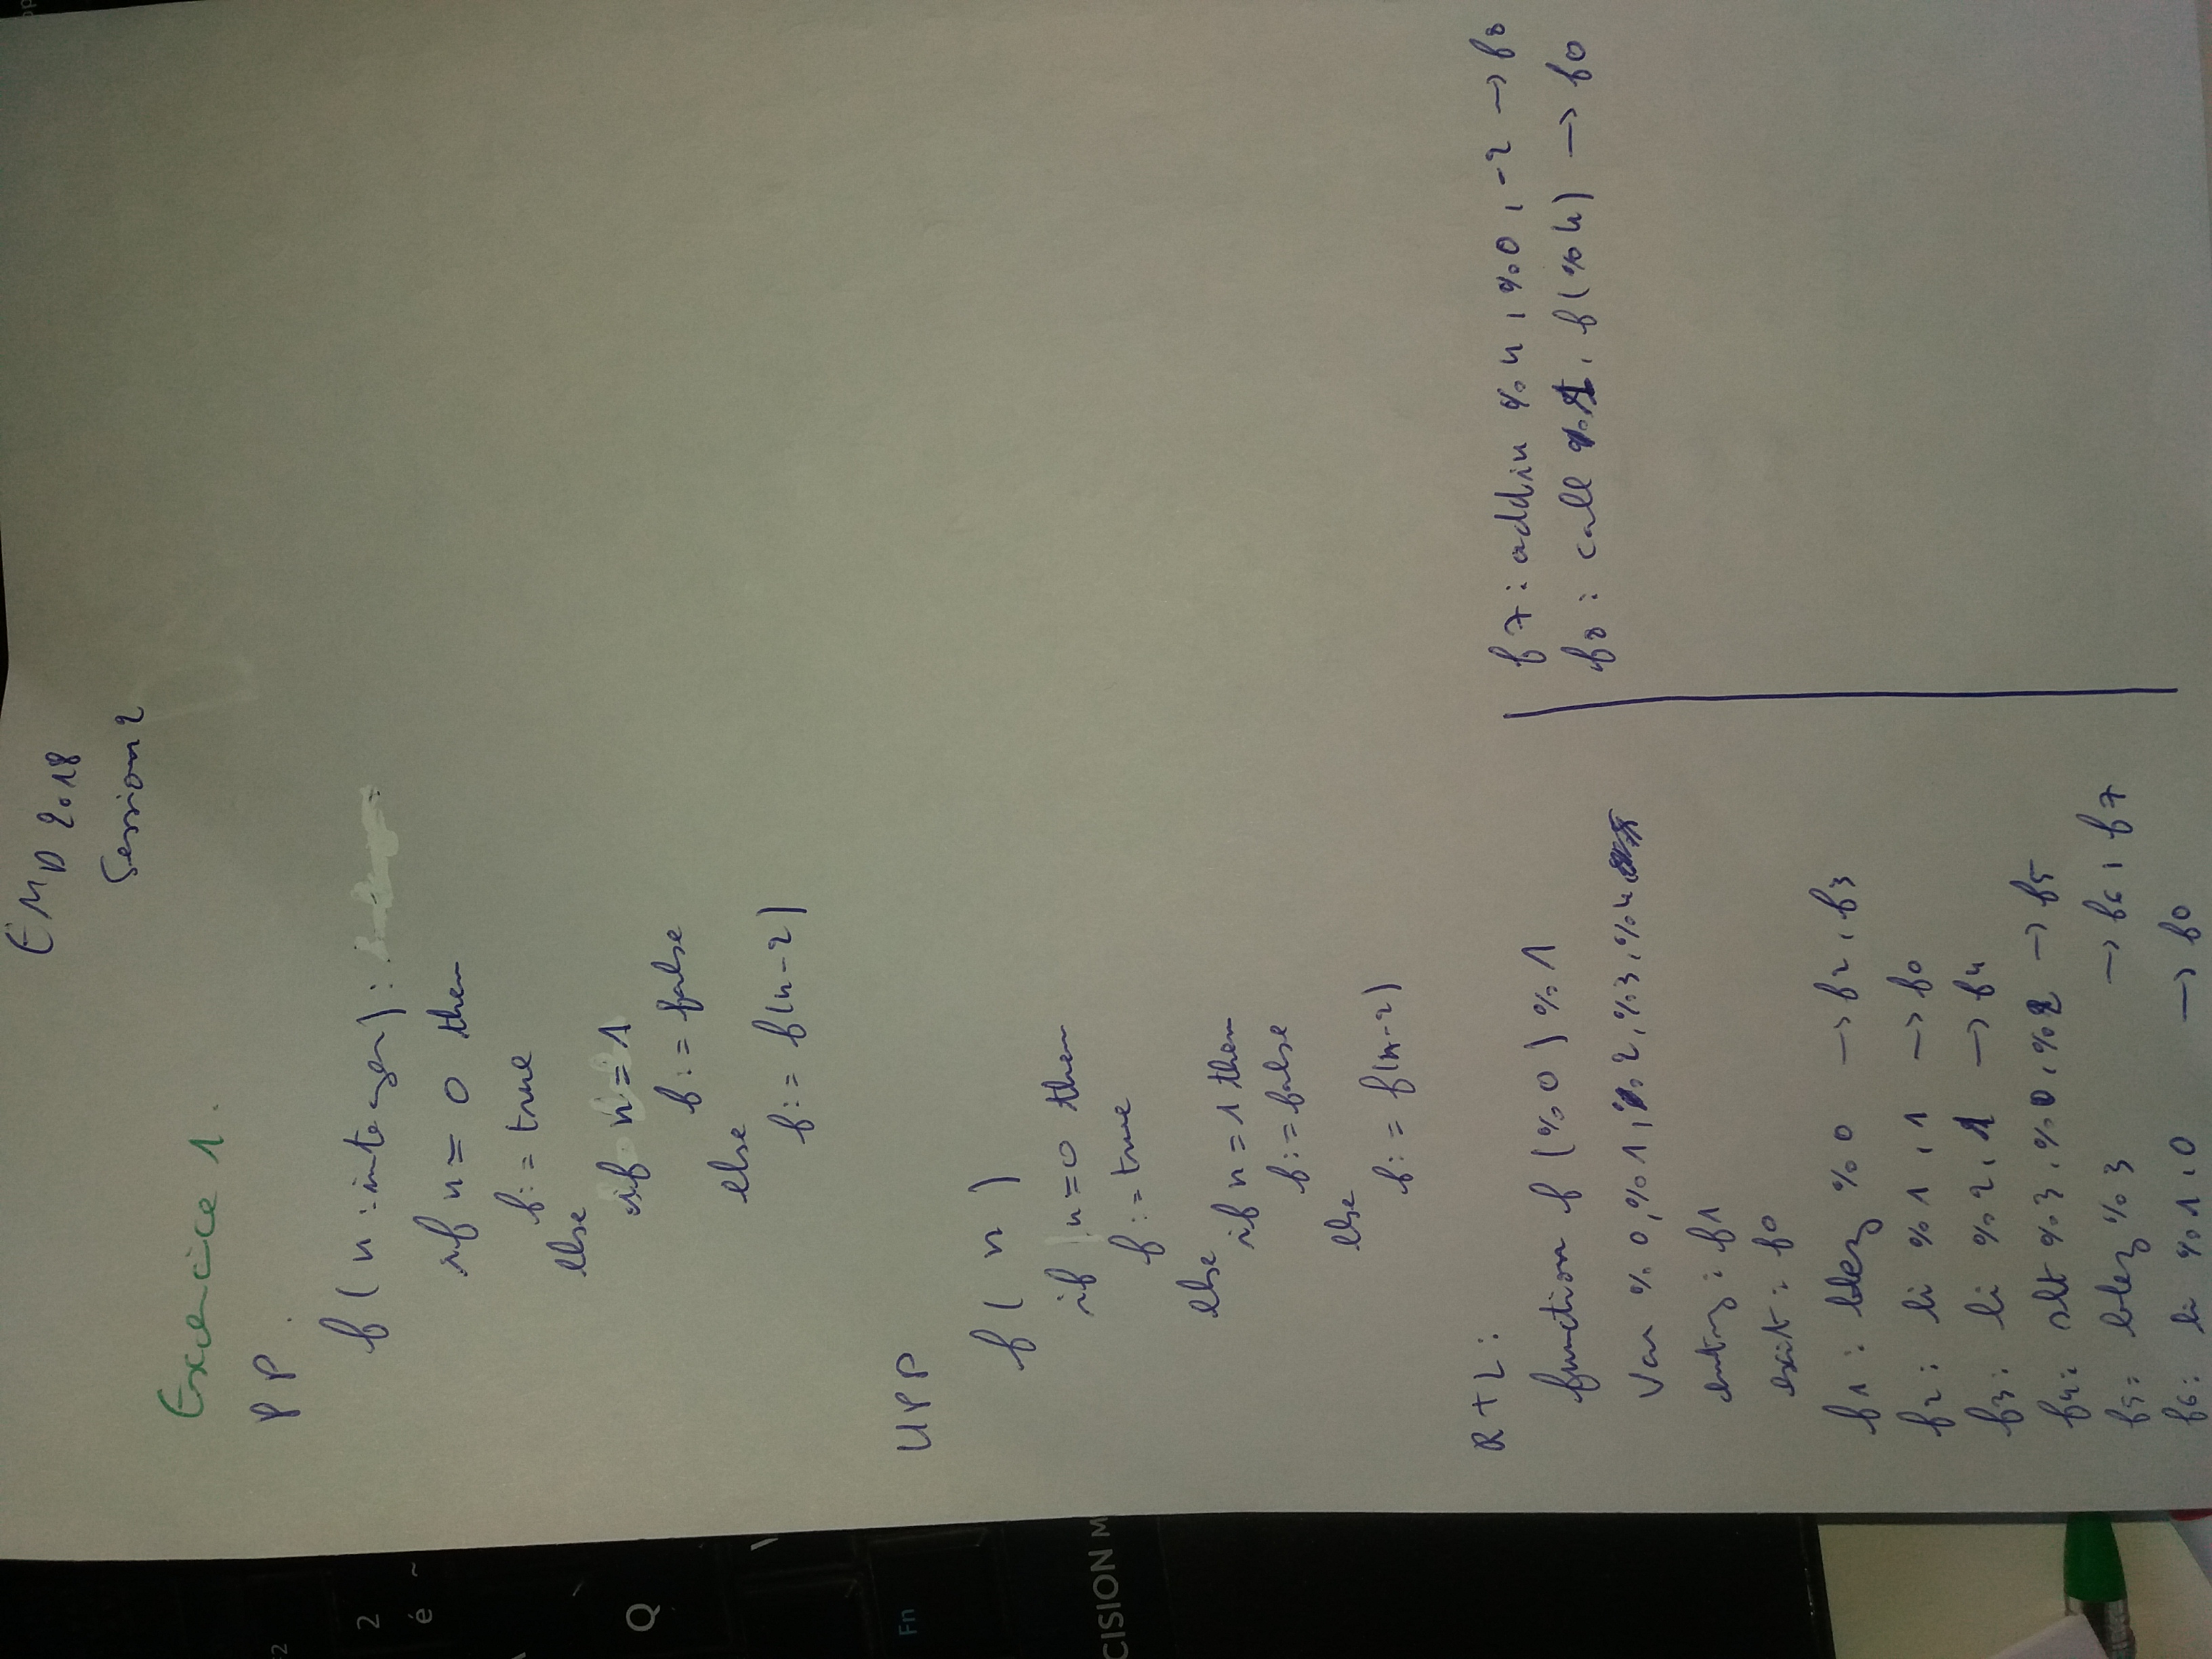 EMD 2018
Session 2
Exercice 1.
PP.
f(n:integer):
if n = 0 then
f:= true
else
if n = 1
f:= false
else
f:= f(n-2)
UPP
f( n )
if n=0 then
f:=true
else
if n = 1 then
f:= false
else
f:= f(n-2)
RTL:
function f (%0) %1
Var %0,%1,%2,%3,%4
entry: f1
exit: f0
f1: blez %0 → f2, f3
f2: li %1, 1 → f0
f3: li %2, 1 → f4
f4: slt %3, %0, %2 → f5
f5: blez %3 → f6, f7
f6: li %1, 0 → f0
f7: addiu %4, %0, -2 → f8
f8: call %1, f(%4) → f0
2
é ~
Q
Fn
CISION M